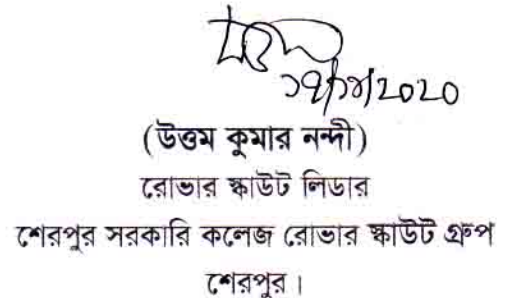 (উত্তম কুমার নন্দী)
রোভার স্কাউট লিডার
শেরপুর সরকারি কলেজ রোভার স্কাউট গ্রুপ
শেরপুর।